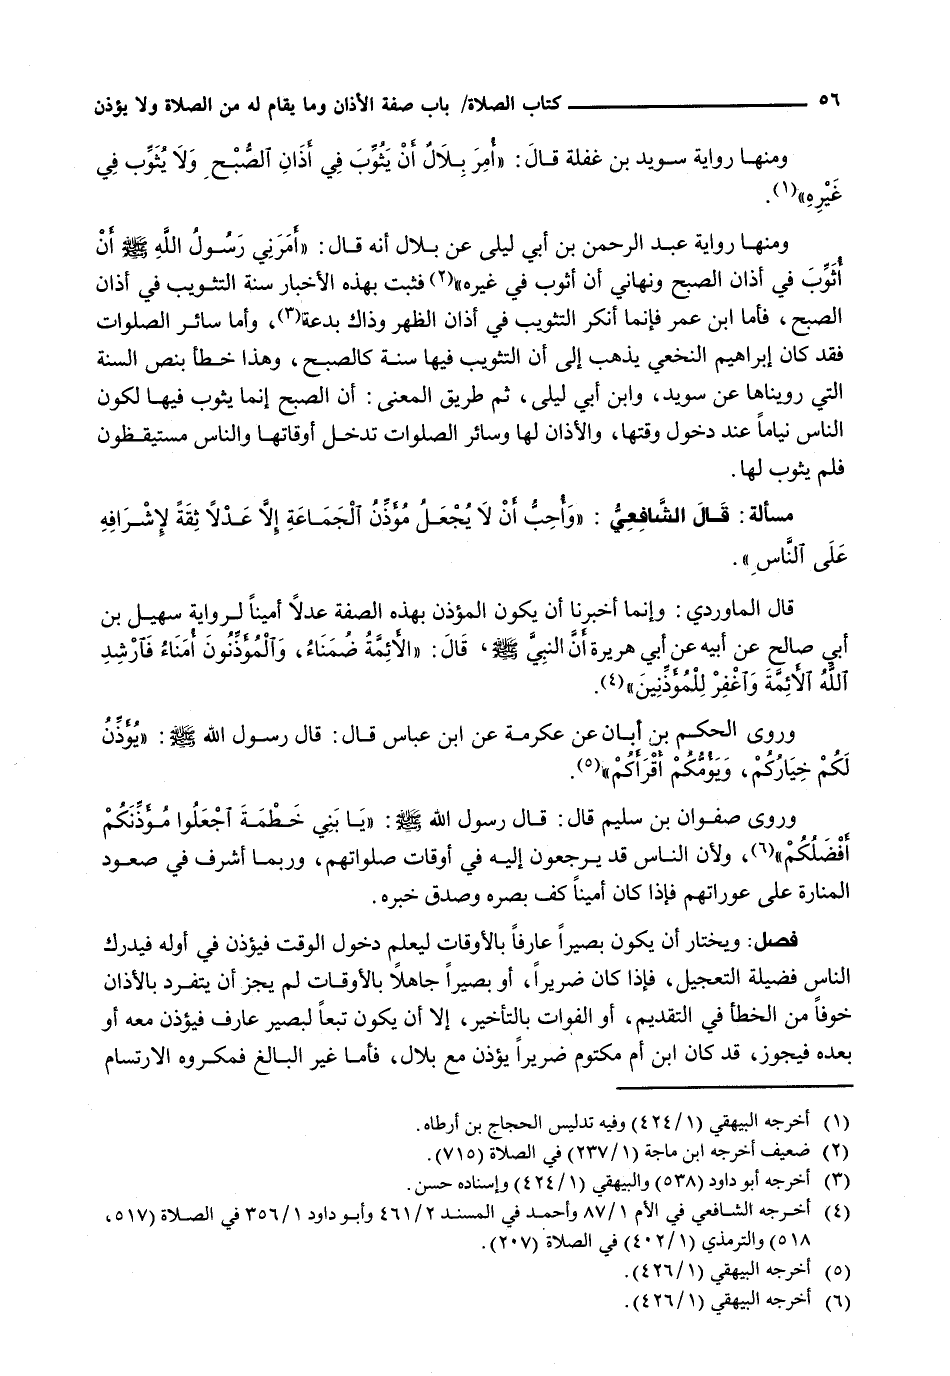 ٥٦ ــــــــــ كتاب الصلاة/ باب صفة الأذان وما يقام له من الصلاة ولا يؤذن
ومنها رواية سويد بن غفلة قال: «أُمِرَ بِلَالُ أَنْ يَثُوِّبَ فِي أَذَانِ ٱلصُّبْحِ وَلَا يُثَوِّب فِي
غَيْرِهِ»(١).
ومنها رواية عبد الرحمن بن أبي ليلى عن بلال أنه قال: «أَمَرَنِي رَسُولُ اللَّهِ ﷺ أَنْ
أُثَوِّبَ في أذان الصبح ونهاني أن أثوب في غيره»(٢) فثبت بهذه الأخبار سنة التثويب في أذان
الصبح، فأما ابن عمر فإنما أنكر التثويب في أذان الظهر وذاك بدعة(٣)، وأما سائر الصلوات
فقد كان إبراهيم النخعي يذهب إلى أن التثويب فيها سنة كالصبح، وهذا خطأ بنص السنة
التي رويناها عن سويد، وابن أبي ليلى، ثم طريق المعنى: أن الصبح إنما يثوب فيها لكون
الناس نياماً عند دخول وقتها، والأذان لها وسائر الصلوات تدخل أوقاتها والناس مستيقظون
فلم يثوب لها.
مسألة: قَالَ الشَّافِعِيُّ : «وَأُحِبُّ أَنْ لَا يُجْعَلُ مُؤَذِّنُ ٱلْجَمَاعَةِ إِلَّا عَدْلًا ثِقَةً لِإِشْرَافِهِ
عَلَى ٱلنَّاسِ».
قال الماوردي: وإنما أخبرنا أن يكون المؤذن بهذه الصفة عدلاً أميناً لرواية سهيل بن
أبي صالح عن أبيه عن أبي هريرة أَنَّ النبيَّ ﷺ، قَالَ: «الأَئِمَّةُ ضُمَنَاءُ، وَٱلْمُؤَذِّنُونَ أُمَنَاءُ فَٱرْشِدِ
ٱللَّهُ ٱلأَئِمَّةَ وَٱغْفِرْ لِلْمُؤَذِّنِينَ»(٤).
وروى الحكم بن أبان عن عكرمة عن ابن عباس قال: قال رسول الله ﷺ: «يُؤَذِّنُ
لَكُمْ خِيَارُكُمْ، وَيَؤُمُّكُمْ أَقْرَأُكُمْ»(٥).
وروى صفوان بن سليم قال: قال رسول الله ﷺ: «يَا بَنِي خَطْمَةَ ٱجْعَلُوا مُؤَذِّنَكُمْ
أَفْضَلُكُمْ»(٦)، ولأن الناس قد يرجعون إليه في أوقات صلواتهم، وربما أشرف في صعود
المنارة على عوراتهم فإذا كان أميناً كف بصره وصدق خبره.
فصل: ويختار أن يكون بصيراً عارفاً بالأوقات ليعلم دخول الوقت فيؤذن في أوله فيدرك
الناس فضيلة التعجيل، فإذا كان ضريراً، أو بصيراً جاهلاً بالأوقات لم يجز أن يتفرد بالأذان
خوفاً من الخطأ في التقديم، أو الفوات بالتأخير، إلا أن يكون تبعاً لبصير عارف فيؤذن معه أو
بعده فيجوز، قد كان ابن أم مكتوم ضريراً يؤذن مع بلال، فأما غير البالغ فمكروه الارتسام
(١) أخرجه البيهقي (٤٢٤/١) وفيه تدليس الحجاج بن أرطاه.
(٢) ضعيف أخرجه ابن ماجة (٢٣٧/١) في الصلاة (٧١٥).
(٣) أخرجه أبو داود (٥٣٨) والبيهقي (٤٢٤/١) وإسناده حسن.
(٤) أخرجه الشافعي في الأم ٨٧/١ وأحمد في المسند ٤٦١/٢ وأبو داود ٣٥٦/١ في الصلاة (٥١٧،
٥١٨) والترمذي (٤٠٢/١) في الصلاة (٢٠٧).
(٥) أخرجه البيهقي (٤٢٦/١).
(٦) أخرجه البيهقي (٤٢٦/١).